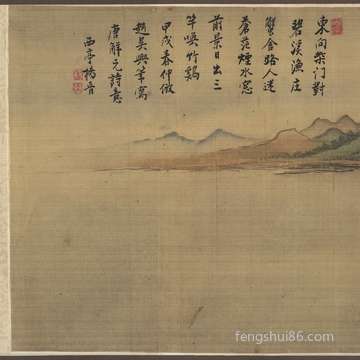 東向柴门對
碧溪漁庄
蟹舍路人迷
蒼茫煙水窓
前景日出三
竿喚竹鷄
甲戌春仲倣
趙吴興筆寫
唐解元詩意
西亭楊晋
fengshui86.com